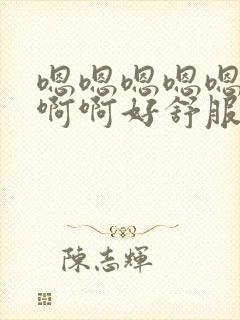 嗯嗯嗯嗯嗯
啊啊好舒服
陳志輝